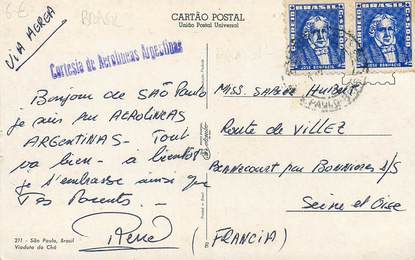 6€
BRASIL
CARTÃO POSTAL
União Postal Universal
VIA AEREA
Cortesia de Aerolineas Argentinas
BRASIL CORREIO
BRASIL CORREIO
JOSÉ BONIFACIO
S. PAULO
Bonjour de SÃO PAULO
je suis par AEROLINEAS
ARGENTINAS. Tout
va bien - a bientot
je t'embrasse ainsi que
Tes Parents...
René
MISS. SABINE HUIBAT
Route de VILLEZ
BENNECOURT par BONNIERES S/S
SEINE et OISE
(FRANCIA)
211 - São Paulo, Brasil
Viaduto do Chá